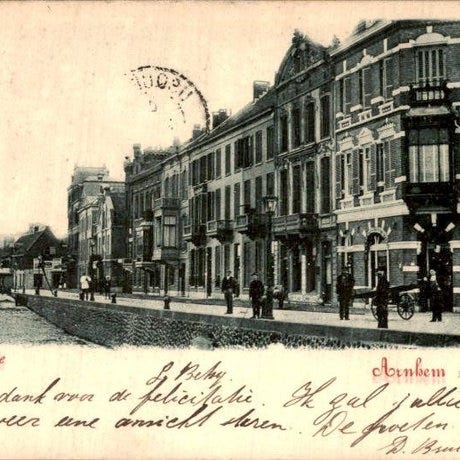 Arnhem
L. Betsy
dank voor de felicitatie. Ik zal jullie
weer eene ansicht sturen. De groeten
D.